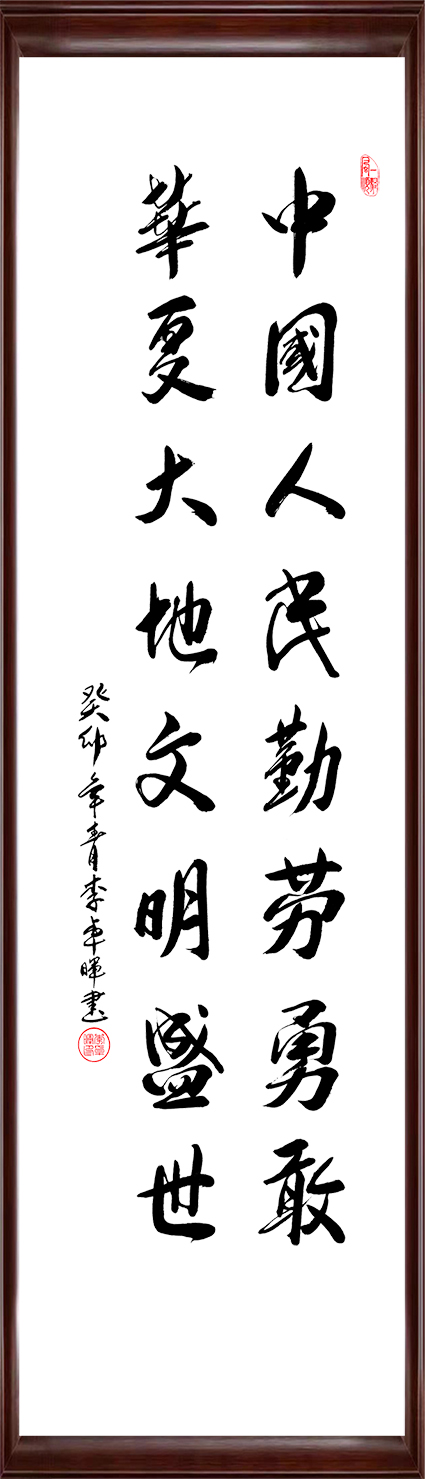 中國人民勤劳勇敢
華夏大地文明盛世
癸卯年青李卓暉書